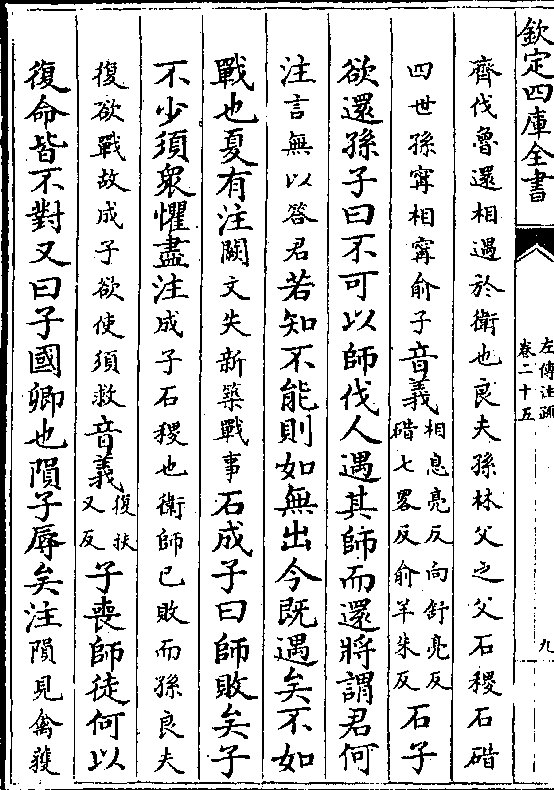 欽定四庫全書
左傳注疏
卷二十五
九
齊伐魯還相遇於衛也良夫孫林父之父石稷石碏
四世孫甯相甯俞子音義相息亮反向舒亮反碏七畧反俞羊朱反石子
欲還孫子曰不可以師伐人遇其師而還將謂君何
注言無以答君若知不能則如無出今既遇矣不如
戰也夏有注闕文失新築戰事石成子曰師敗矣子
不少須衆懼盡注成子石稷也衛師已敗而孫良夫
復欲戰故成子欲使須救音義復扶又反子喪師徒何以
復命皆不對又曰子國卿也隕子辱矣注隕見禽獲